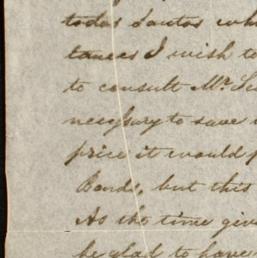 todos Santos wh
tances I wish to
to consult Mr. Se
necessary to save
price it would p
Bonds, but this
As the time give
be glad to have